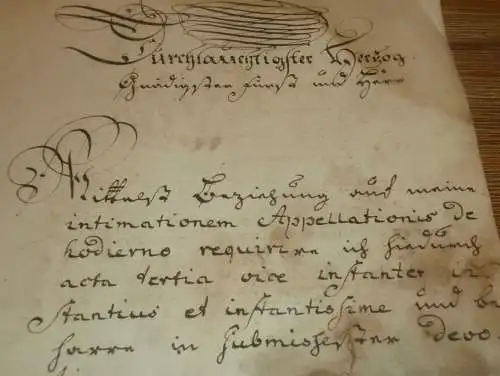 Durchlauchtigster Herzog
Gnädigster Fürst und Herr
Mittelst Beziehung auf meine
intimationem Appellationis de
hodierno requirire ich hiedurch
acta tertia vice instanter in
stantius et instantissime und be
harre in submissester devo